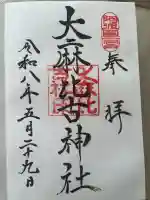 奉拝
大麻比古神社
令和八年五月二十九日